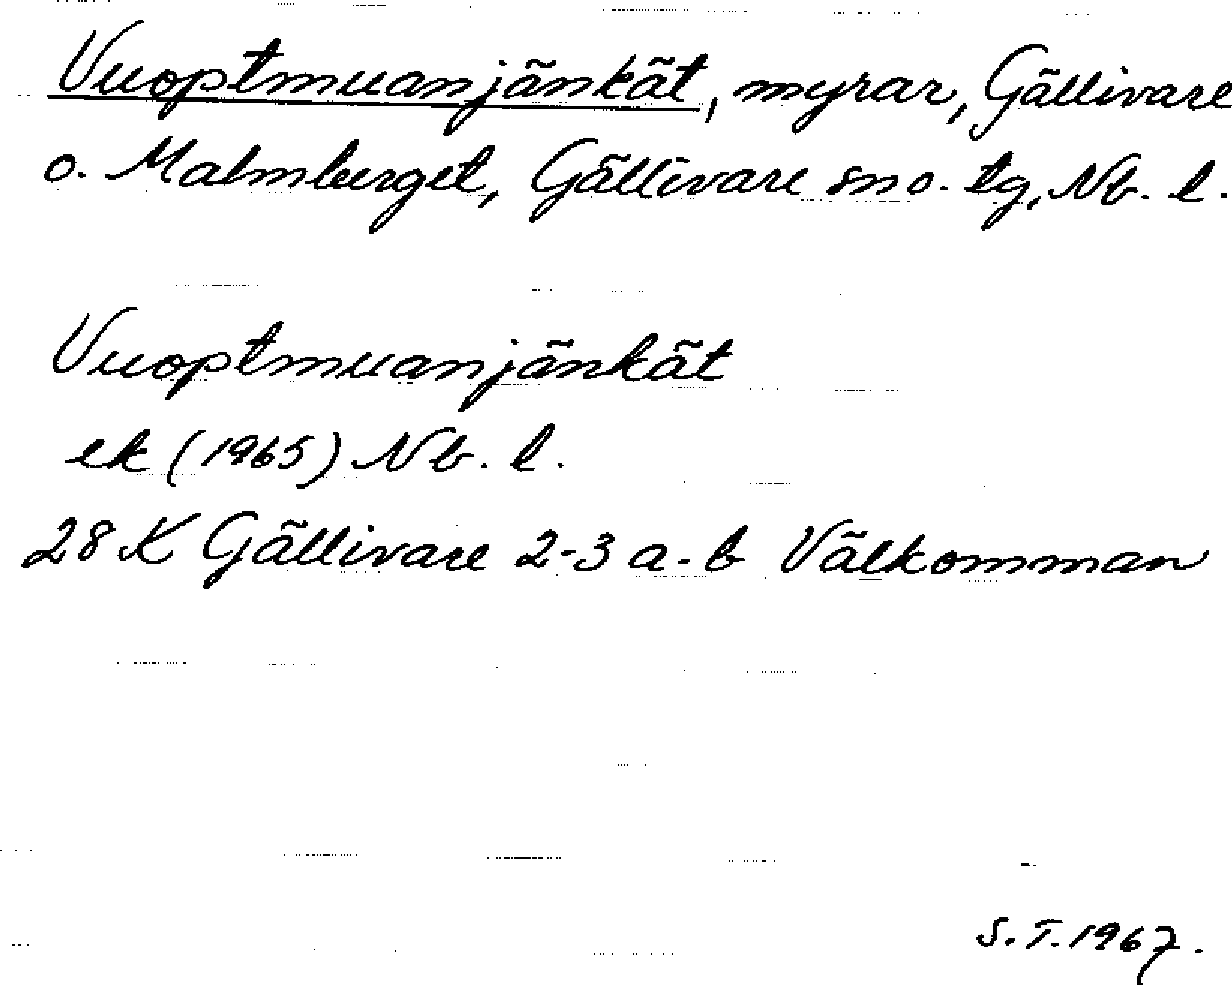 Vuoptmuanjänkät, myrar, Gällivare
o. Malmberget, Gällivare sn o. tg, Nb. l.
Vuoptmuanjänkät
ek (1965) Nb. l.
28 K Gällivare 2-3 a-b Välkomman
S.T. 1967.